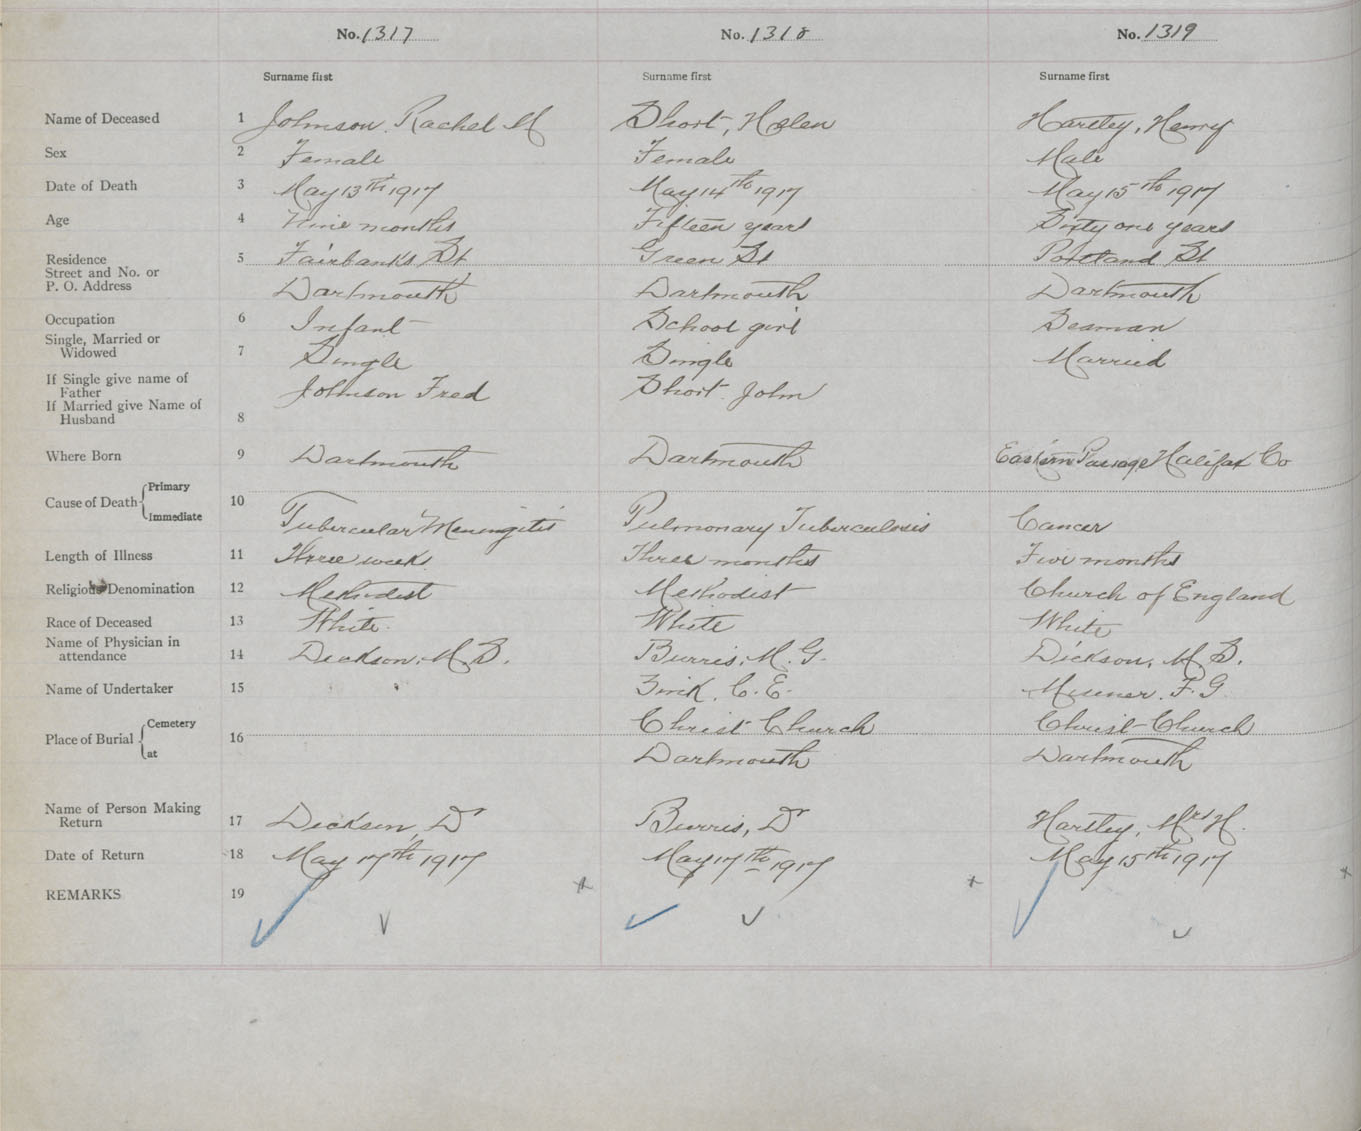 No. 1317 No. 1318 No. 1319
Surname first Surname first Surname first
Name of Deceased 1 Johnson, Rachel M Short, Helen Hartley, Henry
Sex 2 Female Female Male
Date of Death 3 May 13th 1917 May 14th 1917 May 15th 1917
Age 4 Nine months Fifteen years Sixty one years
Residence 5 Fairbanks St Green St Portland St
Street and No. or
P. O. Address Dartmouth Dartmouth Dartmouth
Occupation 6 Infant School girl Seaman
Single, Married or
Widowed 7 Single Single Married
If Single give name of
Father Johnson Fred Short John
If Married give Name of
Husband 8
Where Born 9 Dartmouth Dartmouth Eastern Passage Halifax Co
Cause of Death Primary
Immediate 10 Tubercular Meningitis Pulmonary Tuberculosis Cancer
Length of Illness 11 Three weeks Three months Five months
Religious Denomination 12 Methodist Methodist Church of England
Race of Deceased 13 White White White
Name of Physician in
attendance 14 Dickson, M. S. Burris, M. G. Dickson, M. S.
Name of Undertaker 15 " " Zink, C. E. Misener, F. G.
Place of Burial Cemetery 16 Christ Church Christ Church
at Dartmouth Dartmouth
Name of Person Making
Return 17 Dickson, Dr Burris, Dr Hartley, Mrs H.
Date of Return 18 May 17th 1917 May 17th 1917 May 15th 1917
REMARKS 19